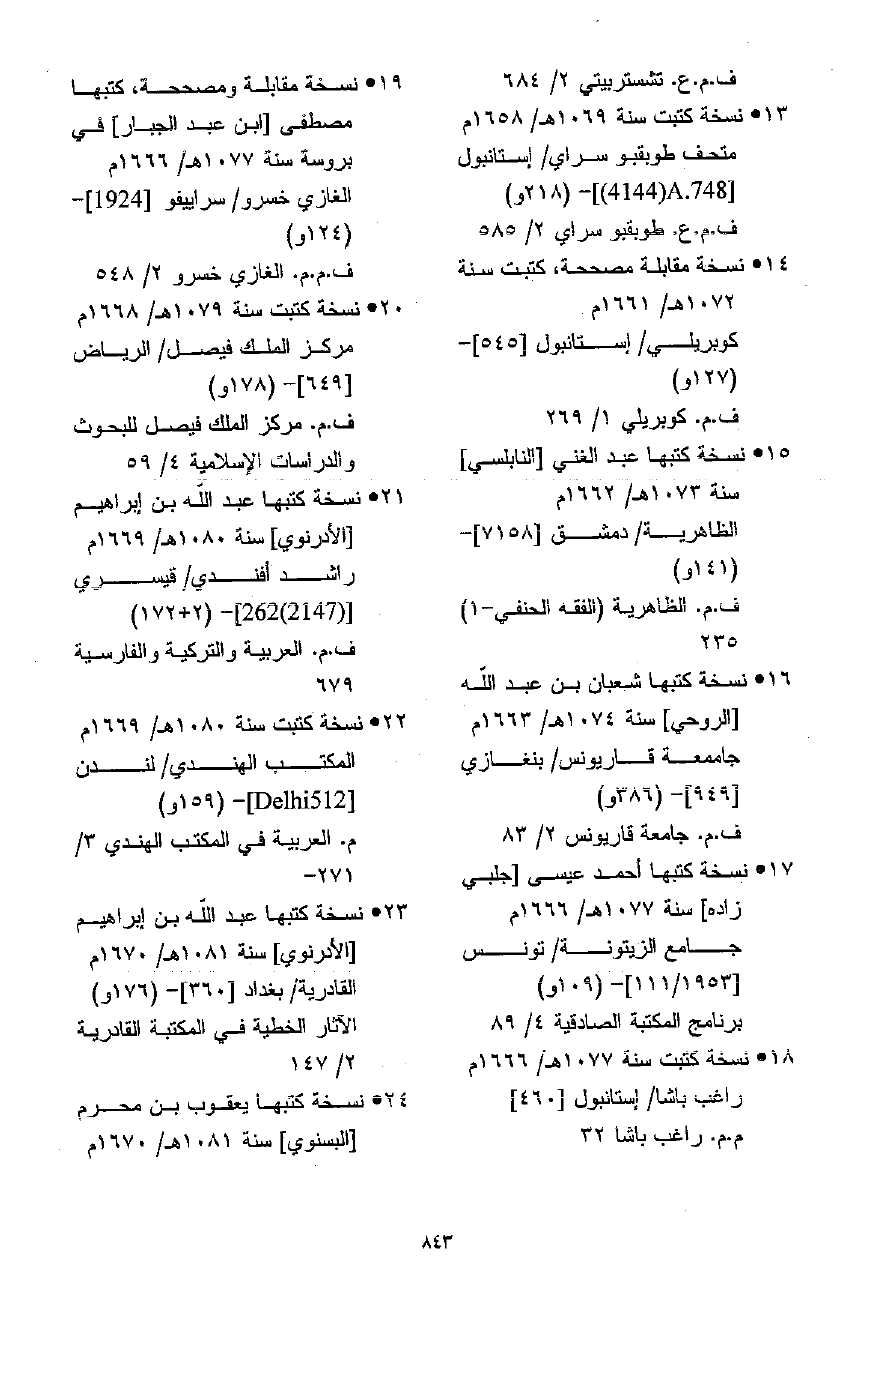 ف.م.ع. تشستربيتي ٢/ ٦٨٤
١٣• نسخة كتبت سنة ١٠٦٩هـ/ ١٦٥٨م
متحف طوبقبو سراي/ إستانبول
[A.748(4144)]- (٢١٨و)
ف.م.ع. طوبقبو سراي ٢/ ٥٨٥
١٤• نسخة مقابلة مصححة، كتبت سنة
١٠٧٢هـ/ ١٦٦١م
كوبريلي/ إستانبول [٥٤٥]-
(١٢٧و)
ف.م. كوبريلي ١/ ٢٦٩
١٥• نسخة كتبها عبد الغني [النابلسي]
سنة ١٠٧٣هـ/ ١٦٦٢م
الظاهرية/ دمشق [٧١٥٨]-
(١٤١و)
ف.م. الظاهرية (الفقه الحنفي-١)
٢٣٥
١٦• نسخة كتبها شعبان بن عبد اللّه
[الروحي] سنة ١٠٧٤هـ/ ١٦٦٣م
جامعة قاريونس/ بنغازي
[٩٤٩]- (٣٨٦و)
ف.م. جامعة قاريونس ٢/ ٨٣
١٧• نسخة كتبها أحمد عيسى [جلبي
زاده] سنة ١٠٧٧هـ/ ١٦٦٦م
جامع الزيتونة/ تونس
[١١١/١٩٥٣]- (١٠٩و)
برنامج المكتبة الصادقية ٤/ ٨٩
١٨• نسخة كتبت سنة ١٠٧٧هـ/ ١٦٦٦م
راغب باشا/ إستانبول [٤٦٠]
م.م. راغب باشا ٣٢
١٩• نسخة مقابلة ومصححة، كتبها
مصطفى [ابن عبد الجبار] في
بروسة سنة ١٠٧٧هـ/ ١٦٦٦م
الغازي خسرو/ سراييفو [1924]-
(١٢٤و)
ف.م.م. الغازي خسرو ٢/ ٥٤٨
٢٠• نسخة كتبت سنة ١٠٧٩هـ/ ١٦٦٨م
مركز الملك فيصل/ الرياض
[٦٤٩]- (١٧٨و)
ف.م. مركز الملك فيصل للبحوث
والدراسات الإسلامية ٤/ ٥٩
٢١• نسخة كتبها عبد اللّه بن إبراهيم
[الأدرنوي] سنة ١٠٨٠هـ/ ١٦٦٩م
راشد أفندي/ قيسري
[262(2147)]- (٢+١٧٢)
ف.م. العربية والتركية والفارسية
٦٧٩
٢٢• نسخة كتبت سنة ١٠٨٠هـ/ ١٦٦٩م
المكتب الهندي/ لندن
[Delhi512]- (١٥٩و)
م. العربية في المكتب الهندي ٣/
٢٧١-
٢٣• نسخة كتبها عبد اللّه بن إبراهيم
[الأدرنوي] سنة ١٠٨١هـ/ ١٦٧٠م
القادرية/ بغداد [٣٦٠]- (١٧٦و)
الآثار الخطية في المكتبة القادرية
٢/ ١٤٧
٢٤• نسخة كتبها يعقوب بن محرم
[البسنوي] سنة ١٠٨١هـ/ ١٦٧٠م
٨٤٣